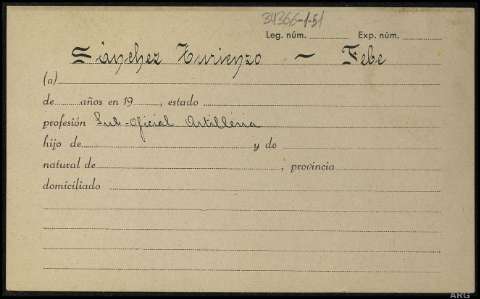 31366-1-51
Leg. núm. Exp. núm.
Sánchez Turienzo - Febe
(a)
de años en 19 , estado
profesión Sub-oficial Artilleria
hijo de y de
natural de , provincia
domiciliado
ARG